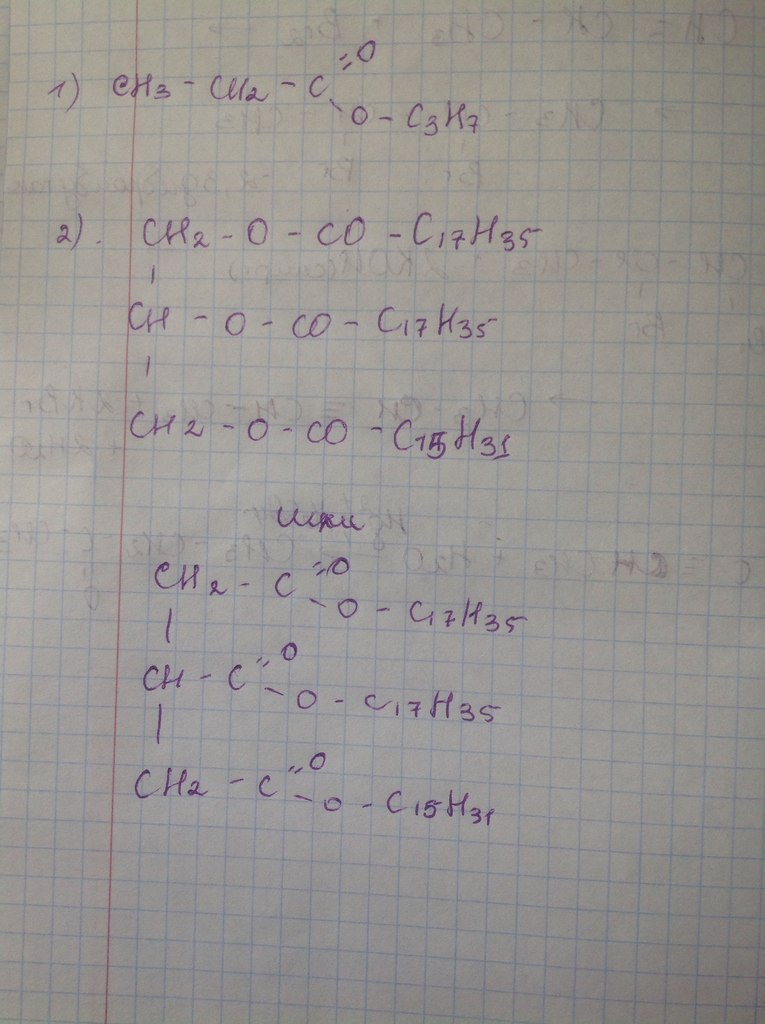 1) CH3 - CH2 - C =O
- O - C3H7
2). CH2 - O - CO - C17H35
|
CH - O - CO - C17H35
|
CH2 - O - CO - C15H31
или
CH2 - C =O
- O - C17H35
|
CH - C =O
- O - C17H35
|
CH2 - C =O
- O - C15H31